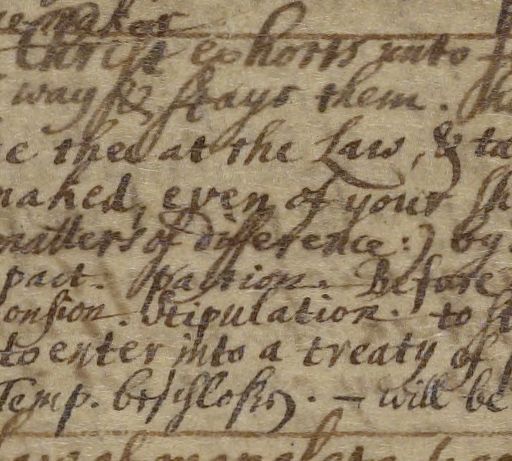 maker
Christ exhorts unto
way & stays them.
thee at the Law, &
naked, even of your
matters of difference:) by
pact. paction. Before
onsion. Stipulation. to
to enter into a treaty of
Temp. - will be